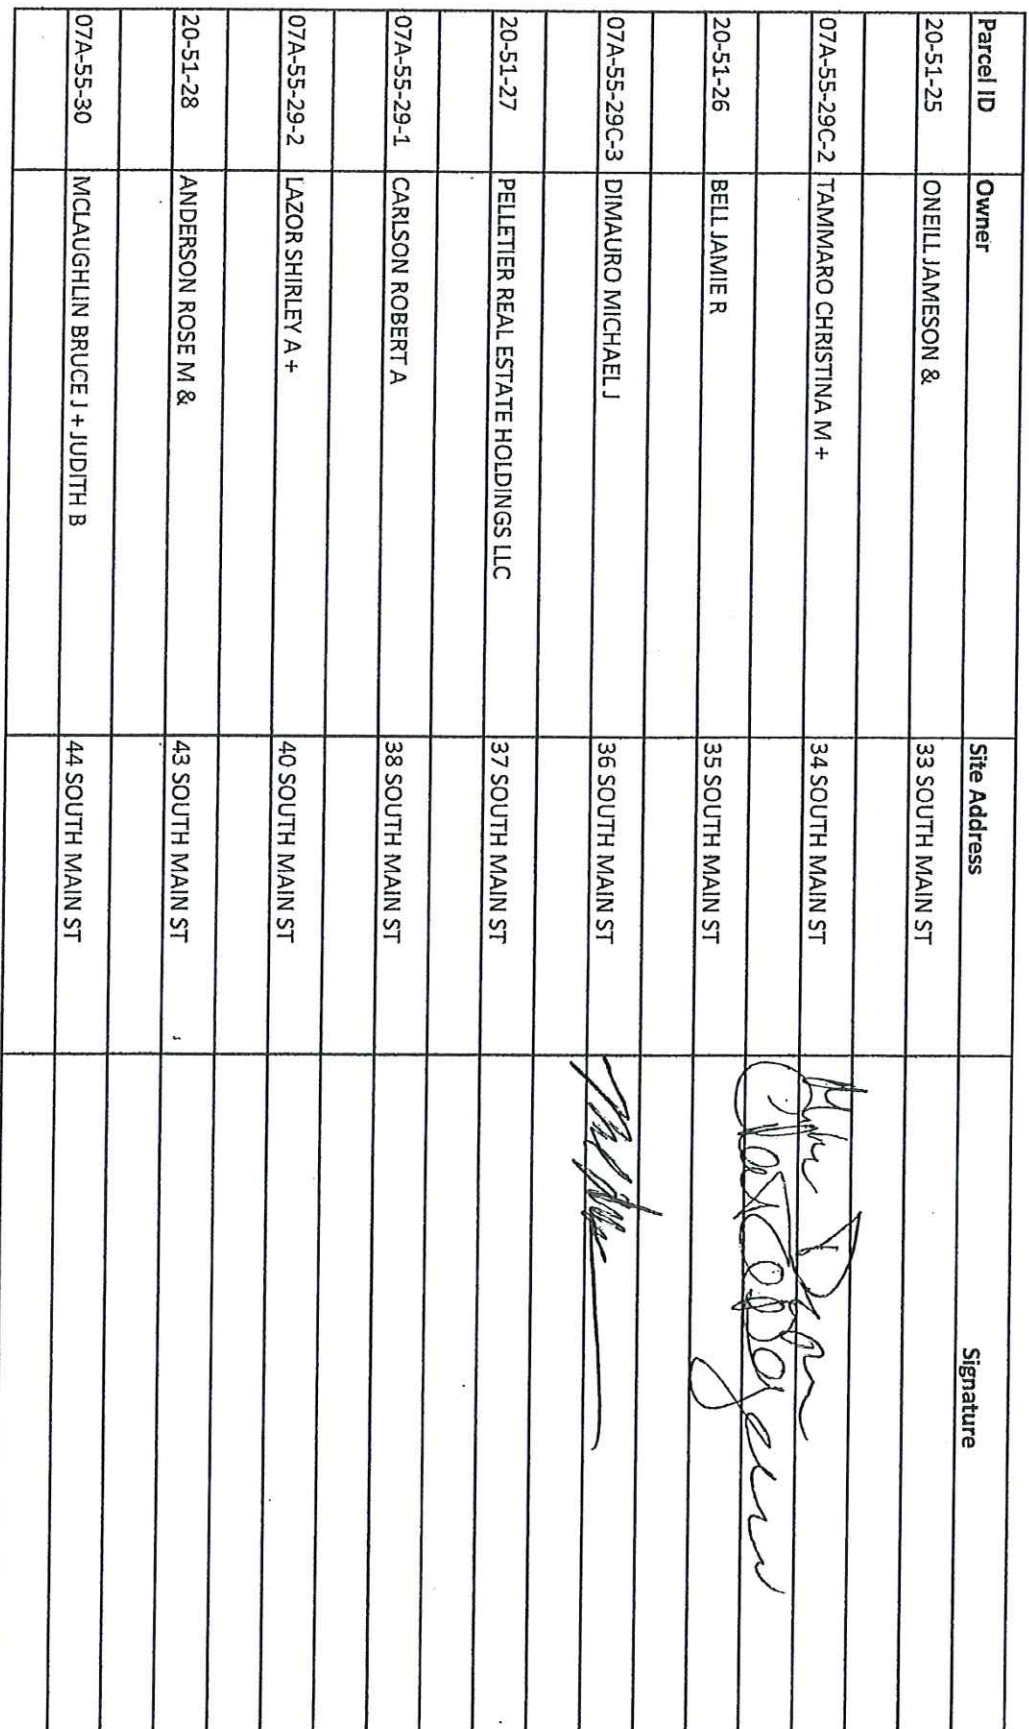 Parcel ID Owner Site Address Signature
20-51-25 ONEILL JAMESON & 33 SOUTH MAIN ST
07A-55-29C-2 TAMMARO CHRISTINA M + 34 SOUTH MAIN ST
20-51-26 BELL JAMIE R 35 SOUTH MAIN ST
07A-55-29C-3 DIMAURO MICHAEL J 36 SOUTH MAIN ST
20-51-27 PELLETIER REAL ESTATE HOLDINGS LLC 37 SOUTH MAIN ST
07A-55-29-1 CARLSON ROBERT A 38 SOUTH MAIN ST
07A-55-29-2 LAZOR SHIRLEY A + 40 SOUTH MAIN ST
20-51-28 ANDERSON ROSE M & 43 SOUTH MAIN ST
07A-55-30 MCLAUGHLIN BRUCE J + JUDITH B 44 SOUTH MAIN ST